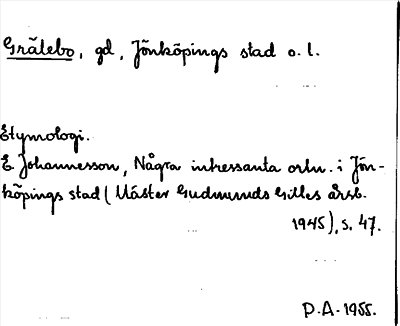 Grälebo, gd, Jönköpings stad o. l.
Etymologi.
E Johannesson, Några intressanta ortn. i Jön-
köpings stad (Mäster Gudmunds Gilles årsb.
1945), s. 47.
P.A. 1955.